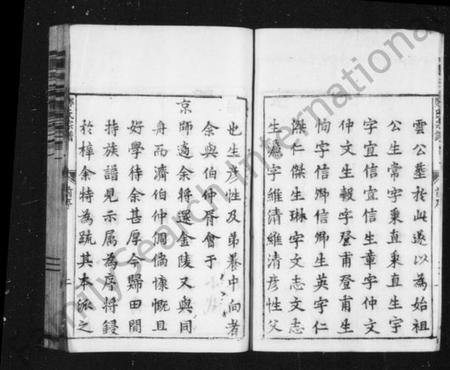 雲公塟於此遂以為始祖
公生常字秉直生宇
字宜信宜信生章字仲文
仲文生毅字登甫登甫生
恂字信卿信卿生英字仁
傑仁傑生琳字文志文志
生瀛字維清維清彦性父
也生彦性及弟養中向者
余與伯仲胥會于
京師適余將還金陵又與同
舟而濟伯仲倜儻慷慨且
好學待余甚厚今歸田間
持族譜見示屬為序將鋟
於梓余特為疏其本派之
MySearch International